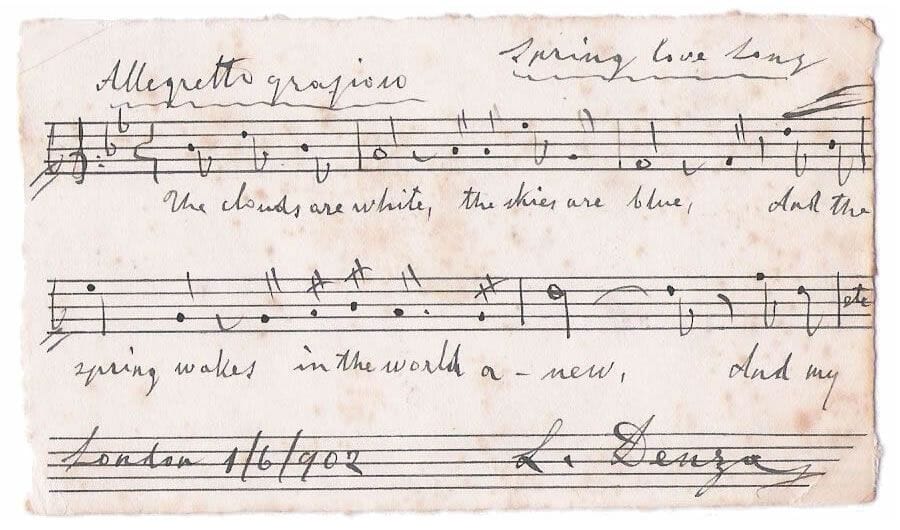 Spring love Song
Allegretto grazioso
The clouds are white, the skies are blue, And the
etc
spring wakes in the world a-new, And my
London 1/6/902
L. Denza